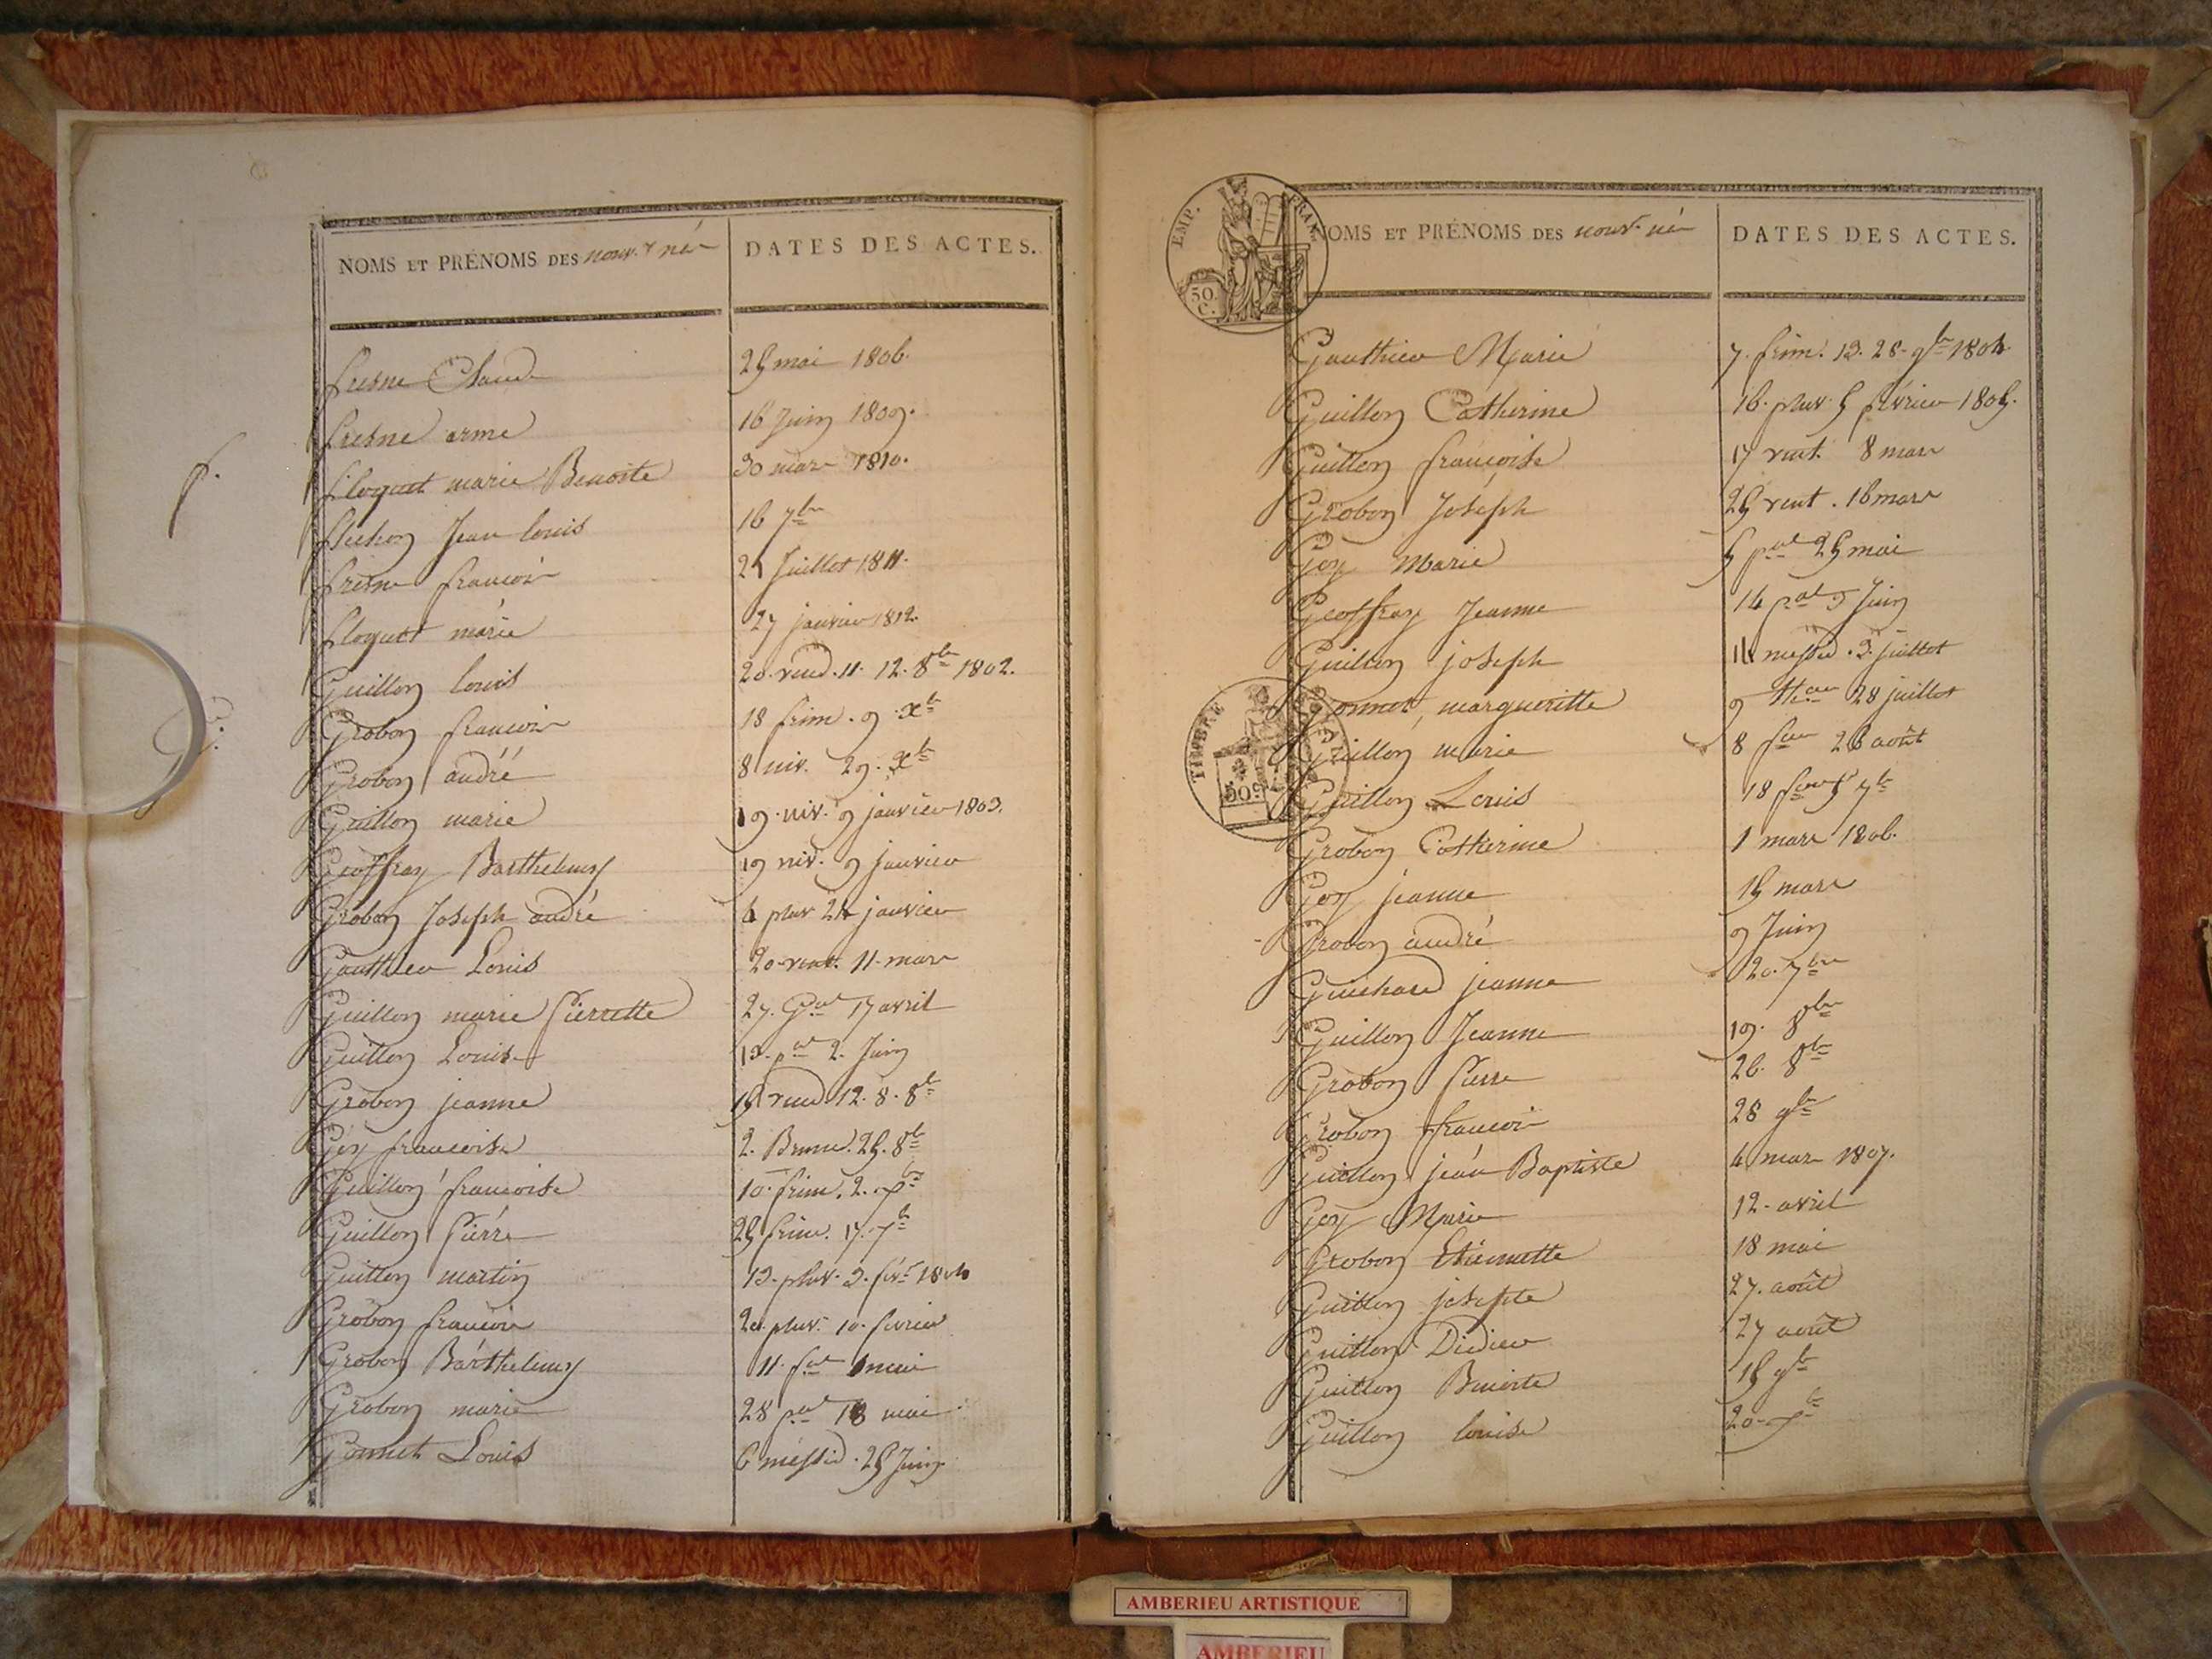 NOMS ET PRÉNOMS DES nouv.x nés DATES DES ACTES.
f.
fresne Claude 25 mai 1806.
fresne anne 16 Juin 1809.
floquet marie Benoite 30 mars 1810.
Jean louis 16 7bre
fresne francois 21 Juillet 1811.
floquet marie 27 janvier 1812.
G.
Guillon louis 20. vend. 11. 12. 8bre 1802.
Grobon francois 18 frim. 9 Xbre
Grobon andré 8 niv. 29. Xbre
Guillon marie 19. niv. 9 janvier 1803.
Geoffray Barthelemy 19 niv. 9 janvier
Grobon Joseph andré 4 pluv 24 janvier
Gauthier Louis 20 vent. 11 mars
Guillon marie Pierrette 27. Gal 17 avril
Guillon Louise 13. pal 2. Juin
Grobon jeanne 15 vend 12. 8. 8bre
Goy francoise 2. Brum. 25. 8bre
Guillon francoise 10. frim. 2. Xbre
Guillon Pierre 25 frim. 17. Xbre
Guillon martin 13. pluv. 3. fév. 1804
Grobon francois 20. pluv. 10. fevrier
Grobon Barthelemy 11. fal 1 mai
Grobon marie 28 pal 18 mai
Gonnet Louis 6 messid. 25 Juin
EMP. FRAN.
50. C.
NOMS ET PRÉNOMS DES nouv.x nés DATES DES ACTES.
Gauthier Marie 7. frim. 13. 28. 9bre 1804
Guillon Catherine 16. pluv. 5 février 1805.
Guillon francoise 17 vent. 8 mars
Grobon Joseph 25 vent. 16 mars
Goy Marie 5 pal 25 mai
Geoffray Jeanne 14 pal 3 Juin
Guillon joseph 14 messid. 3. juillet
Gonnet margueritte 9 ther 28 juillet
TIMBRE
50 c
Guillon marie 8 for 26 août
Guillon Louis 18 for 5 7bre
Grobon Catherine 1 mars 1806.
Goy jeanne 15 mars
Grobon andré 9 Juin
Guichard jeanne 20. 7bre
Guillon Jeanne 19. 8bre
Grobon Pierre 26. 8bre
Grobon francois 28 9bre
Guillon jean Baptiste 4 mars 1807.
Goy Marie 12. avril
Grobon Etiennette 18 mai
Guillon josepte 27. août
Guillon Didier 27 août
Guillon Benoite 15 9bre
Guillon louise 20. Xbre
AMBERIEU ARTISTIQUE
AMBERIEU